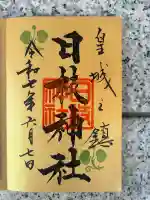 皇城之鎮
日枝神社
令和七年六月七日